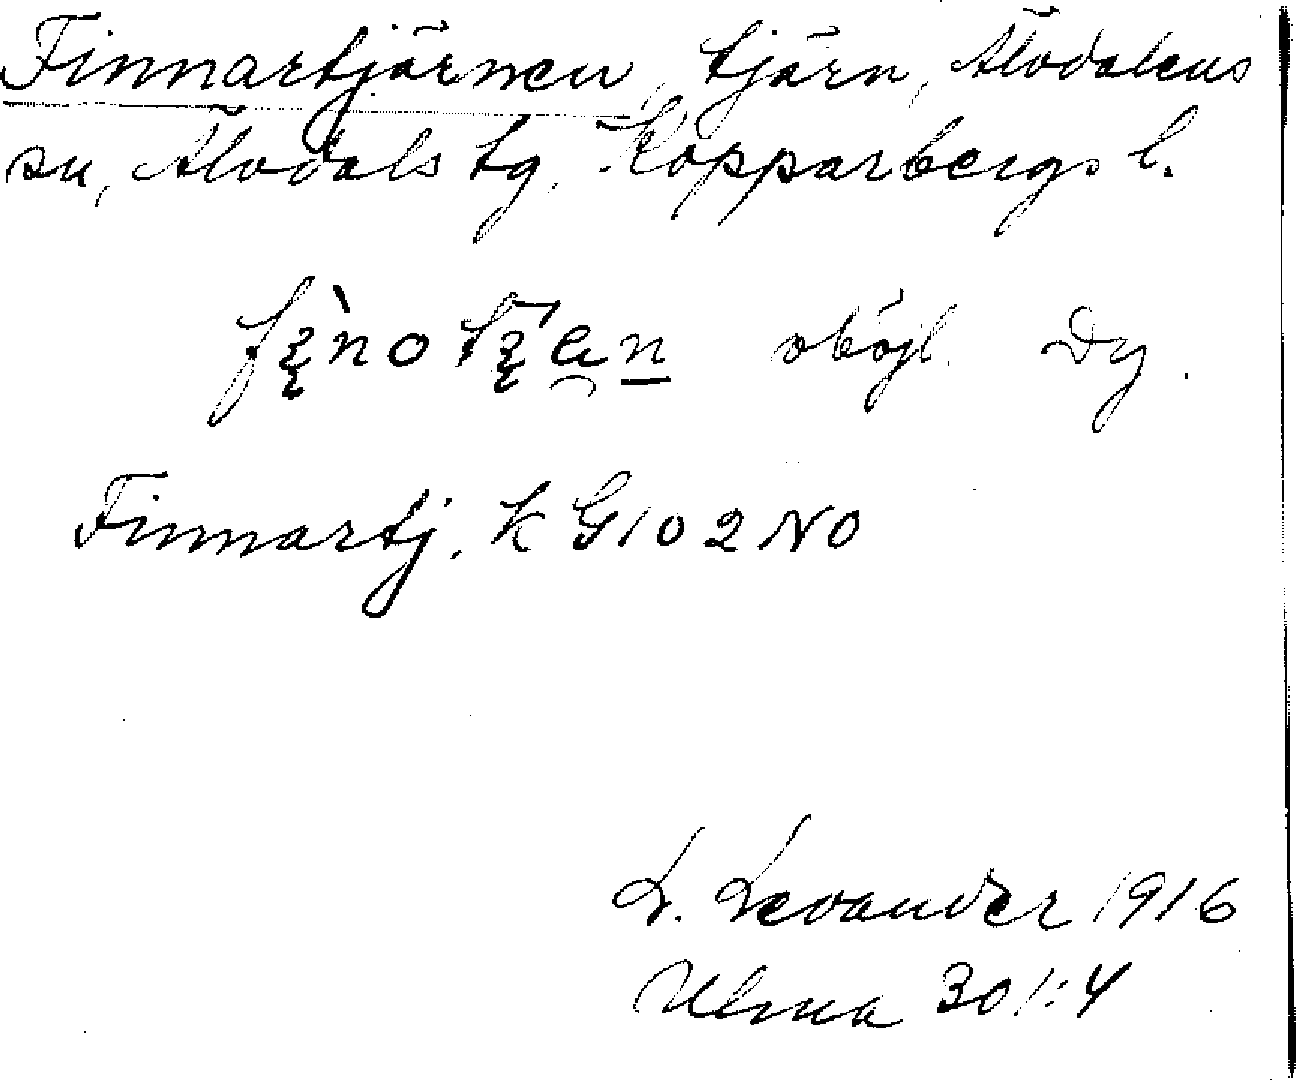 Finnartjärnen, tjärn, Älvdalens
sn, Älvdals tg, Kopparbergs l.
oböjl. Dy.
Finnartj. K G102NO
L. Levander 1916
Ulma 301:4